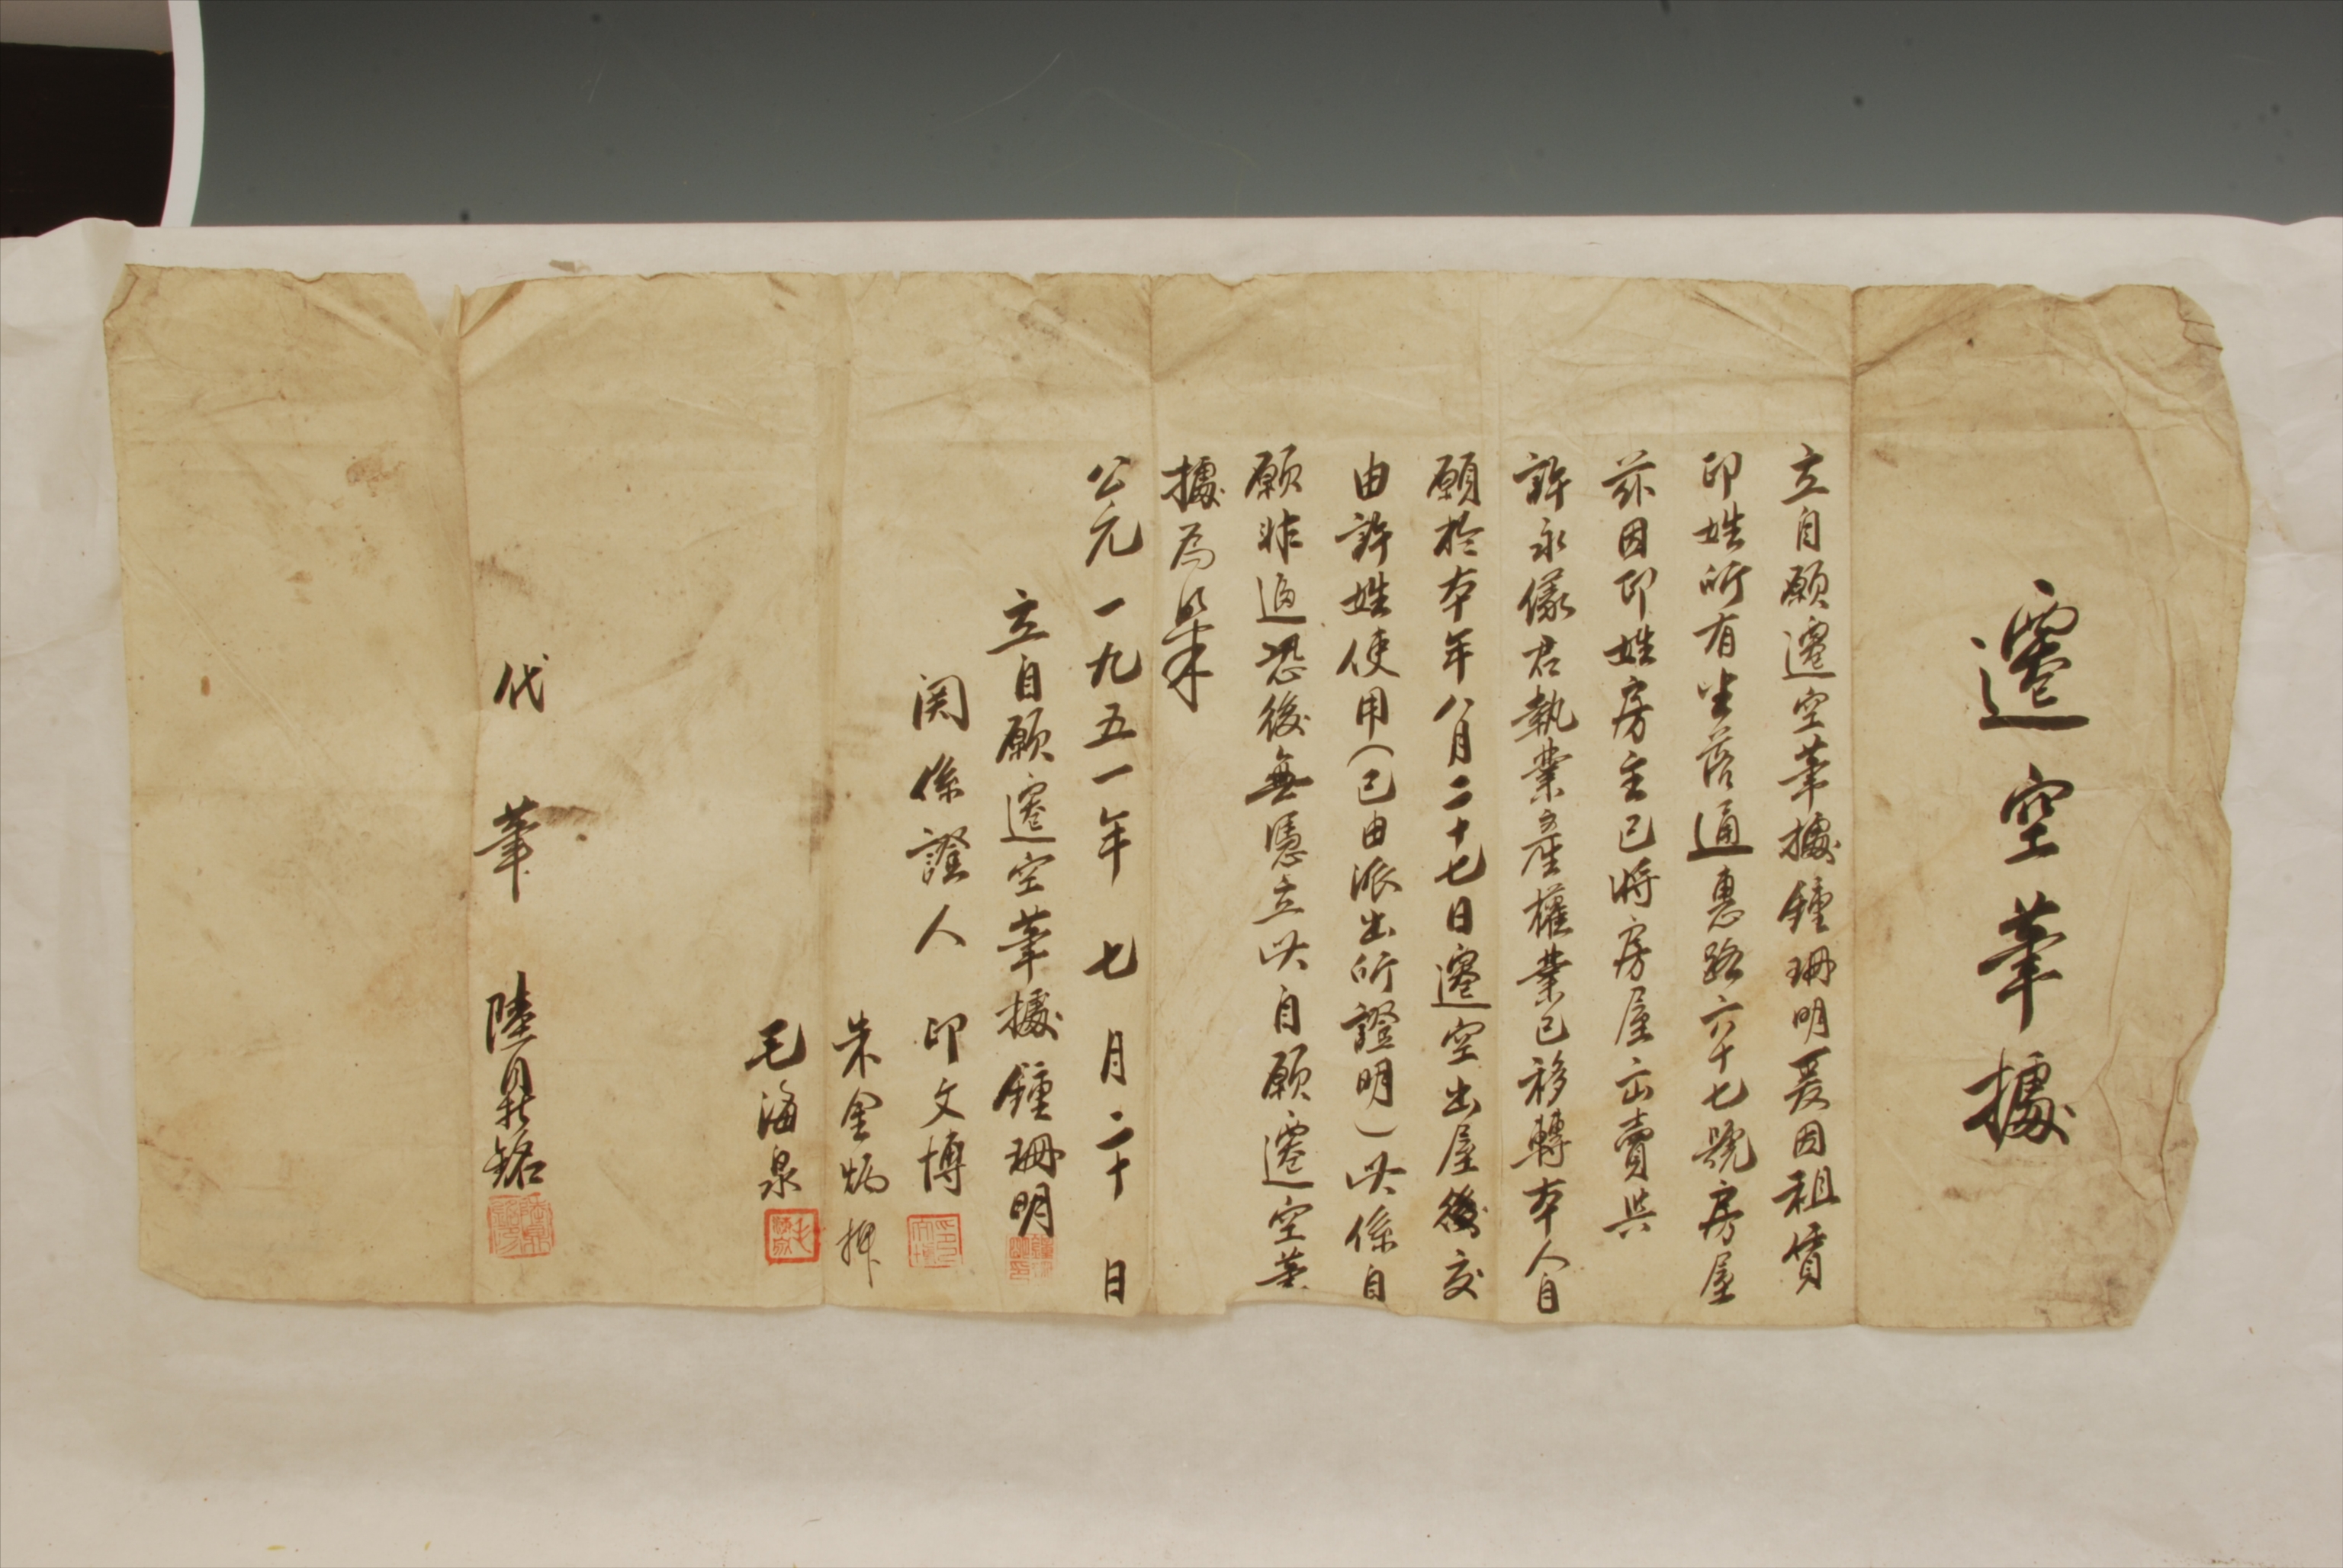 遷空筆據
立自願遷空筆據鍾珊明爰因租賃
印姓所有坐落通惠路六十七號房屋
茲因印姓房主已將房屋出賣與
許永儀君執業產權業已移轉本人自
願於本年八月二十七日遷空出屋後交
由許姓使用(已由派出所證明)此係自
願非逼恐後無憑立此自願遷空筆
據為
公元一九五一年七月二十日
立自願遷空筆據鍾珊明
関係證人 印文博
朱金炳 押
毛海泉
代筆 陸鼎銘